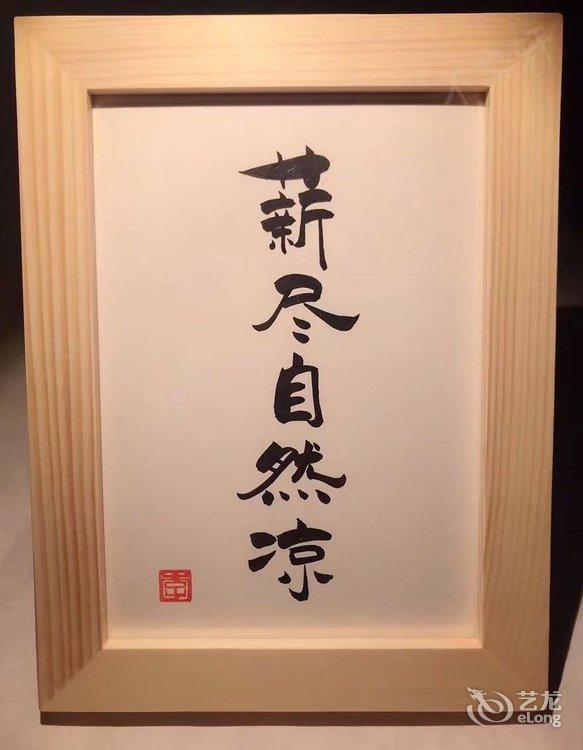 薪尽自然凉
艺龙
eLong